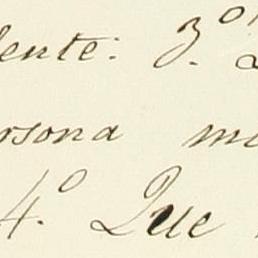 lente: 3.º
ersona me
4.º Que